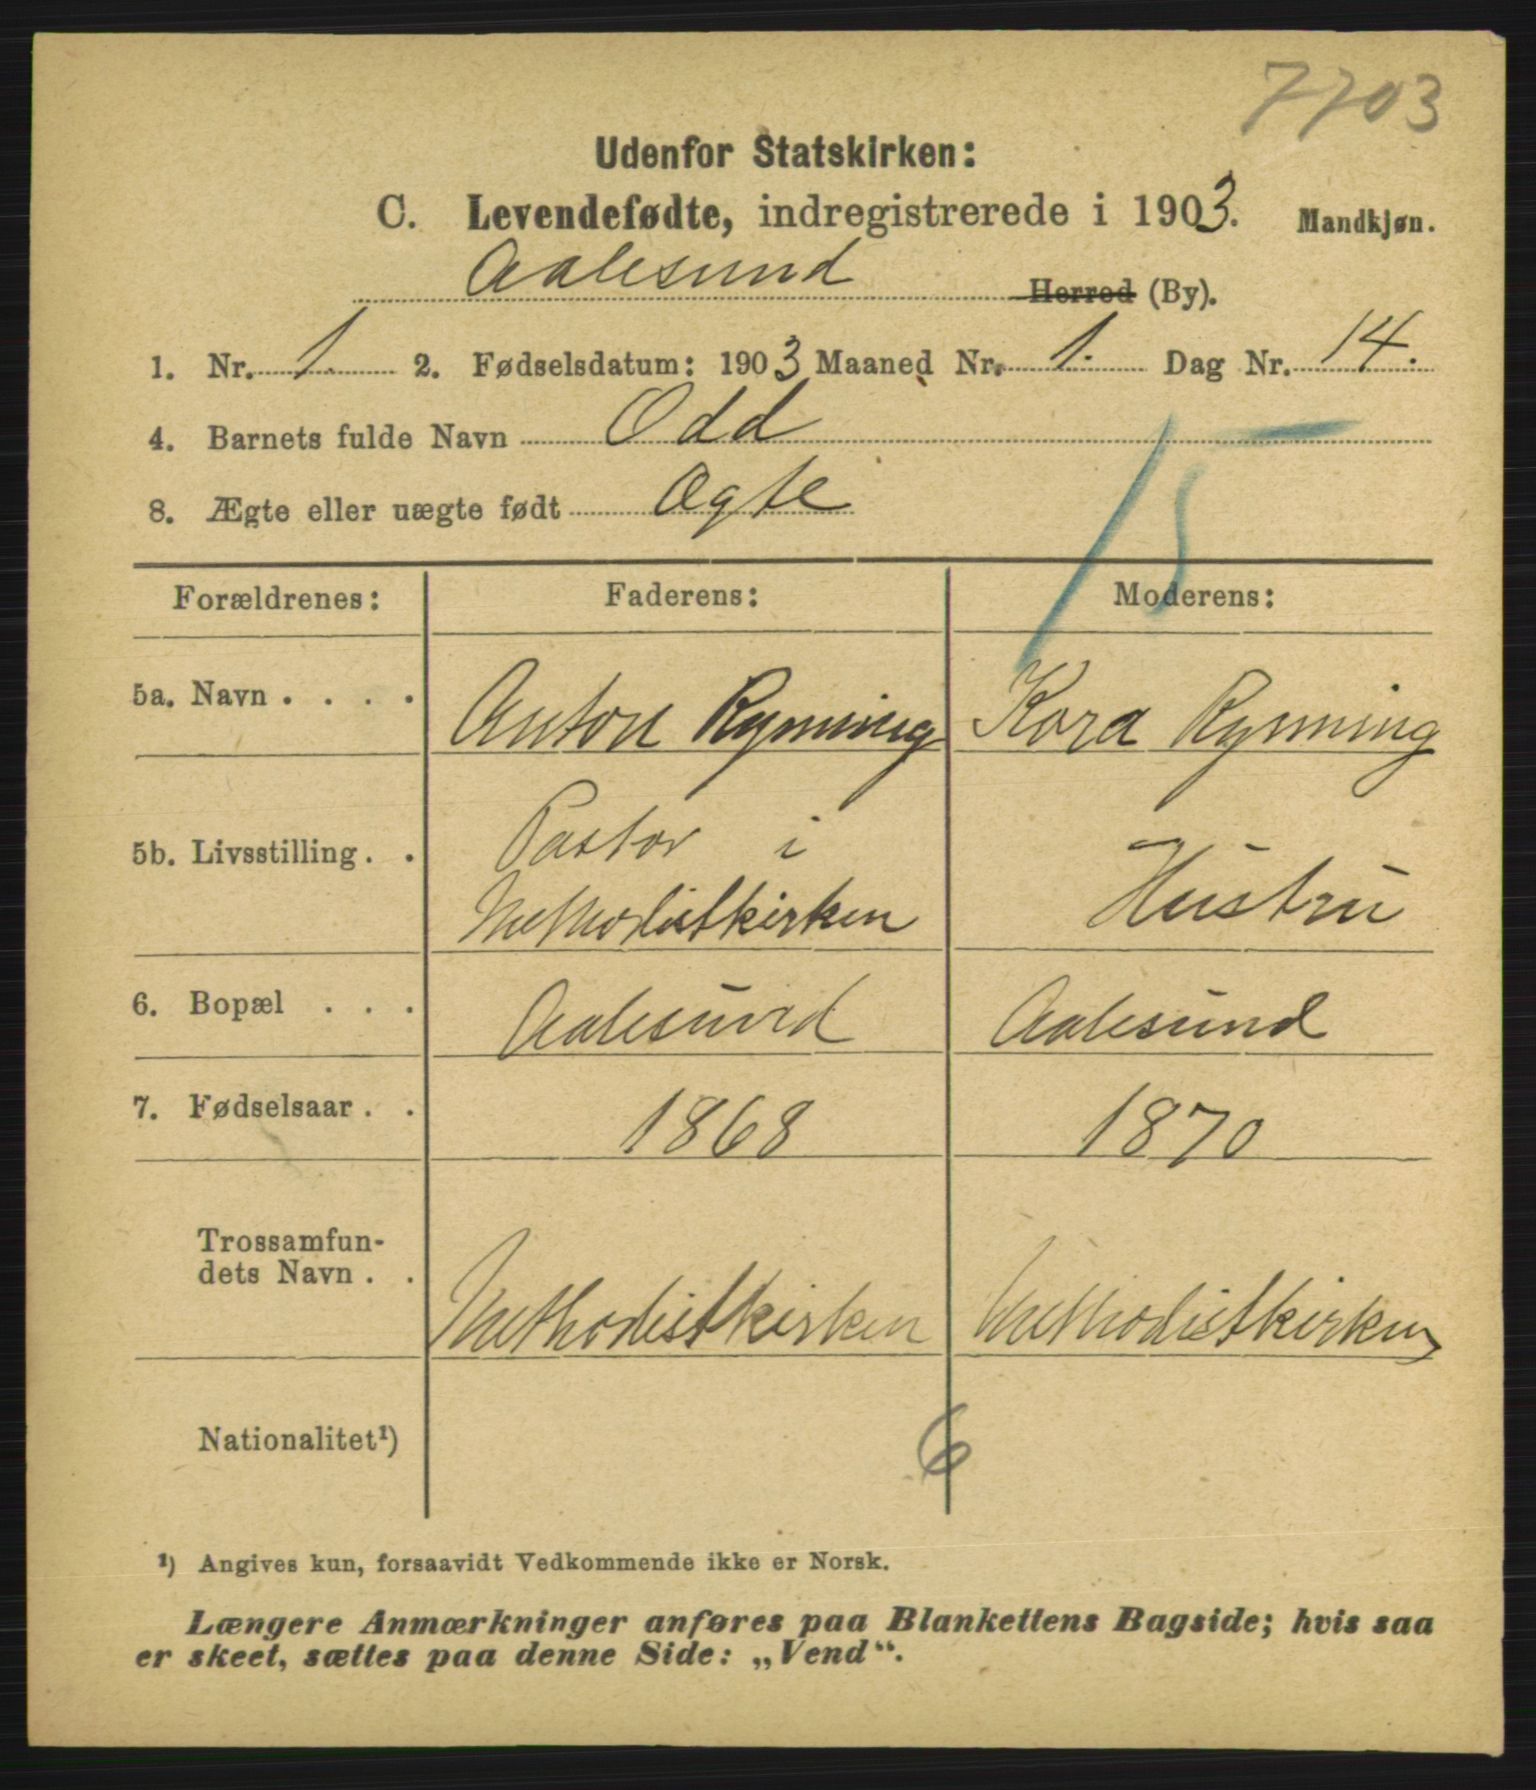 7703
Udenfor Statskirken:
C. Levendefødte, indregistrerede i 1903. Mandkjøn.
Aalesund Herred (By).
1. Nr. 1. 2. Fødselsdatum: 1903 Maaned Nr. 1. Dag Nr. 14.
4. Barnets fulde Navn Odd
8. Ægte eller uægte født Ægte
15
Forældrenes: Faderens: Moderens:
5a. Navn . . . . Anton Rynning Kora Rynning
5b. Livsstilling . . Pastor i
Methodistkirken Hustru
6. Bopæl . . . Aalesund Aalesund
7. Fødselsaar . . 1868 1870
Trossamfun-
dets Navn . . Methodistkirken Methodistkirken
Nationalitet¹)
6
¹) Angives kun, forsaavidt Vedkommende ikke er Norsk.
Længere Anmærkninger anføres paa Blankettens Bagside; hvis saa
er skeet, sættes paa denne Side: „Vend“.